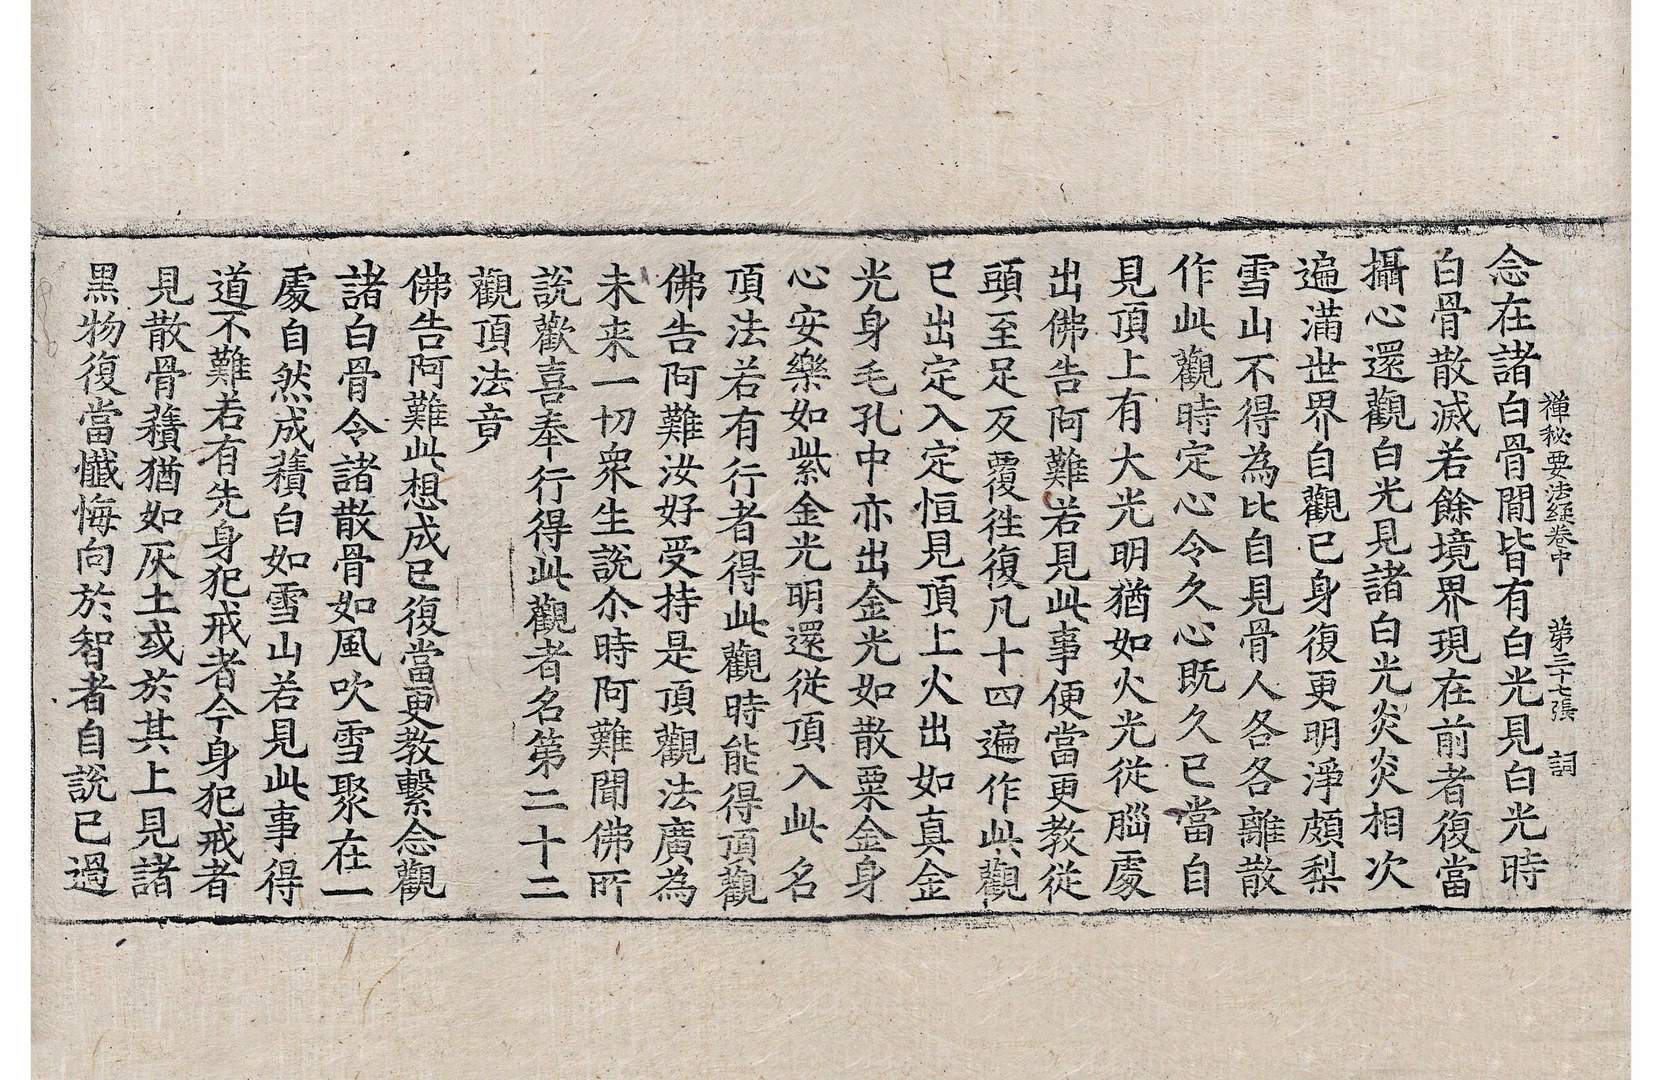 禪秘要法經卷中 第三十七張 詞
念在諸白骨間皆有白光見白光時
白骨散滅若餘境界現在前者復當
攝心還觀白光見諸白光炎炎相次
遍滿世界自觀已身復更明淨頗梨
雪山不得為比自見骨人各各離散
作此觀時定心令久心既久已當自
見頂上有大光明猶如火光從腦處
出佛告阿難若見此事便當更教從
頭至足反覆往復凡十四遍作此觀
已出定入定恒見頂上火出如真金
光身毛孔中亦出金光如散粟金身
心安樂如紫金光明還從頂入此名
頂法若有行者得此觀時能得頂觀
佛告阿難汝好受持是頂觀法廣為
未来一切衆生說尒時阿難聞佛所
說歡喜奉行得此觀者名第二十二
觀頂法竟
佛告阿難此想成已復當更教繫念觀
諸白骨令諸散骨如風吹雪聚在一
處自然成積白如雪山若見此事得
道不難若有先身犯戒者今身犯戒者
見散骨積猶如灰土或於其上見諸
黑物復當懺悔向於智者自說已過